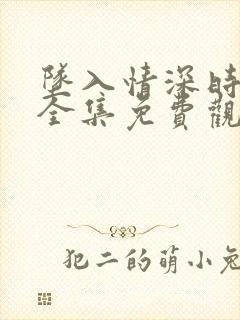 墜入情深時
全集免費觀
犯二的萌小兔